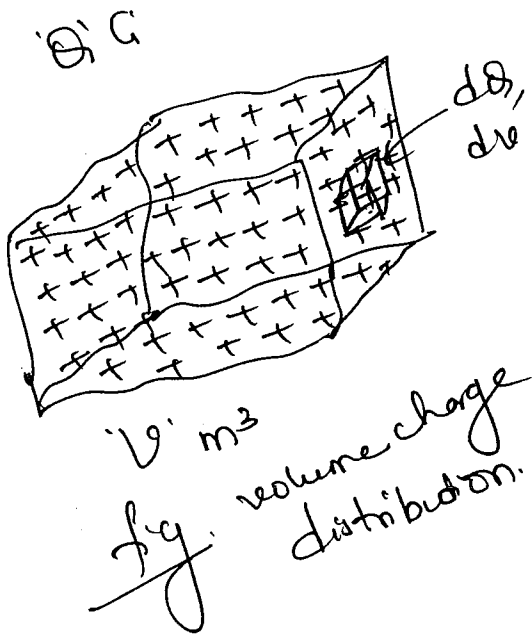 'Q' C
dQ,
dv
'V' m³
fig. volume charge
distribution.